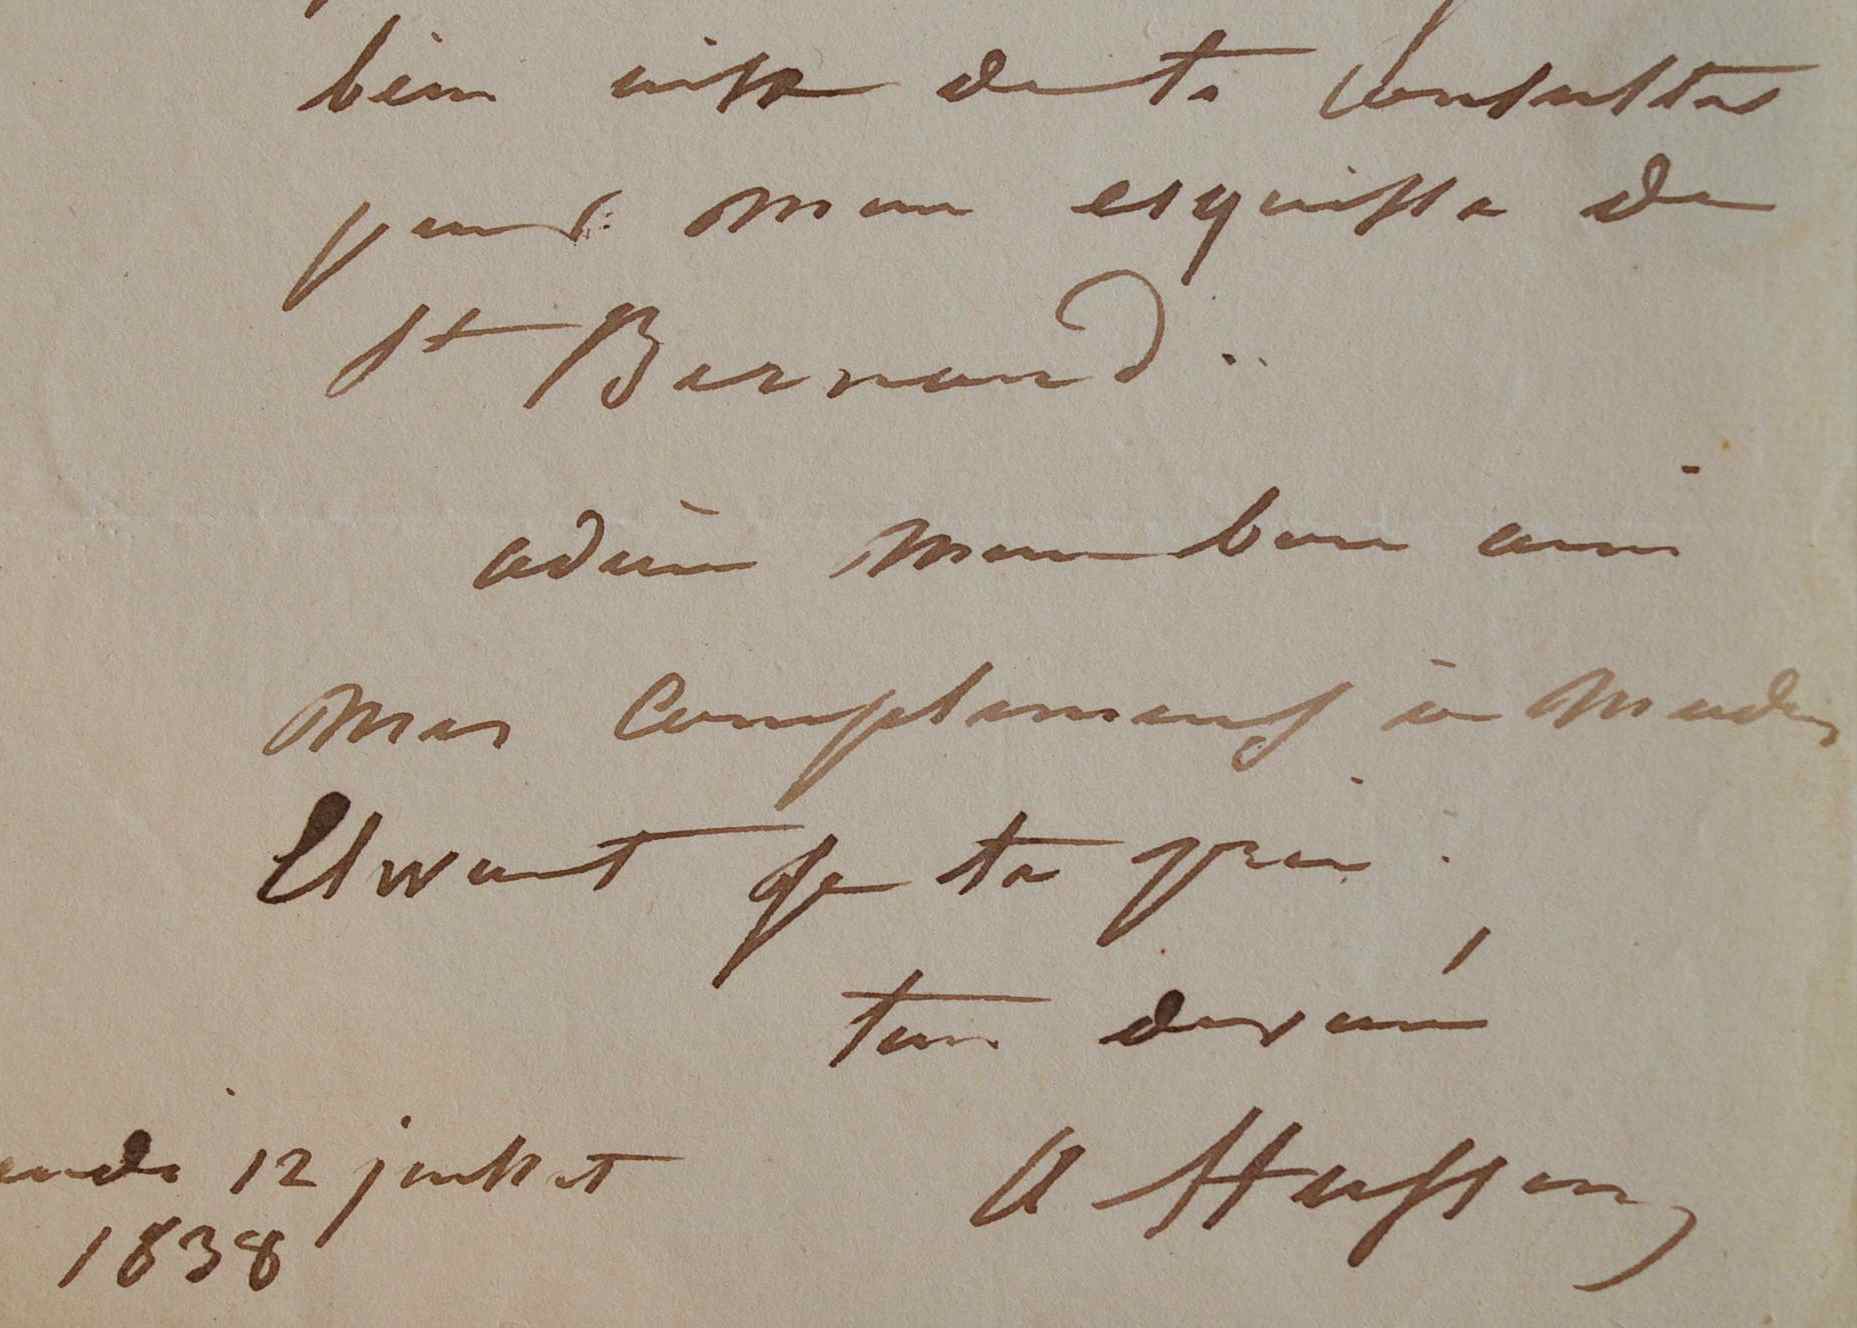 bien aise de te Consulter
pour mon esquisse de
St Bernard ..
adieu mon bon ami
Mes Compliments à Madme
Elwart je te prie .
ton dévoué
endi 12 juillet
1838
A Husson